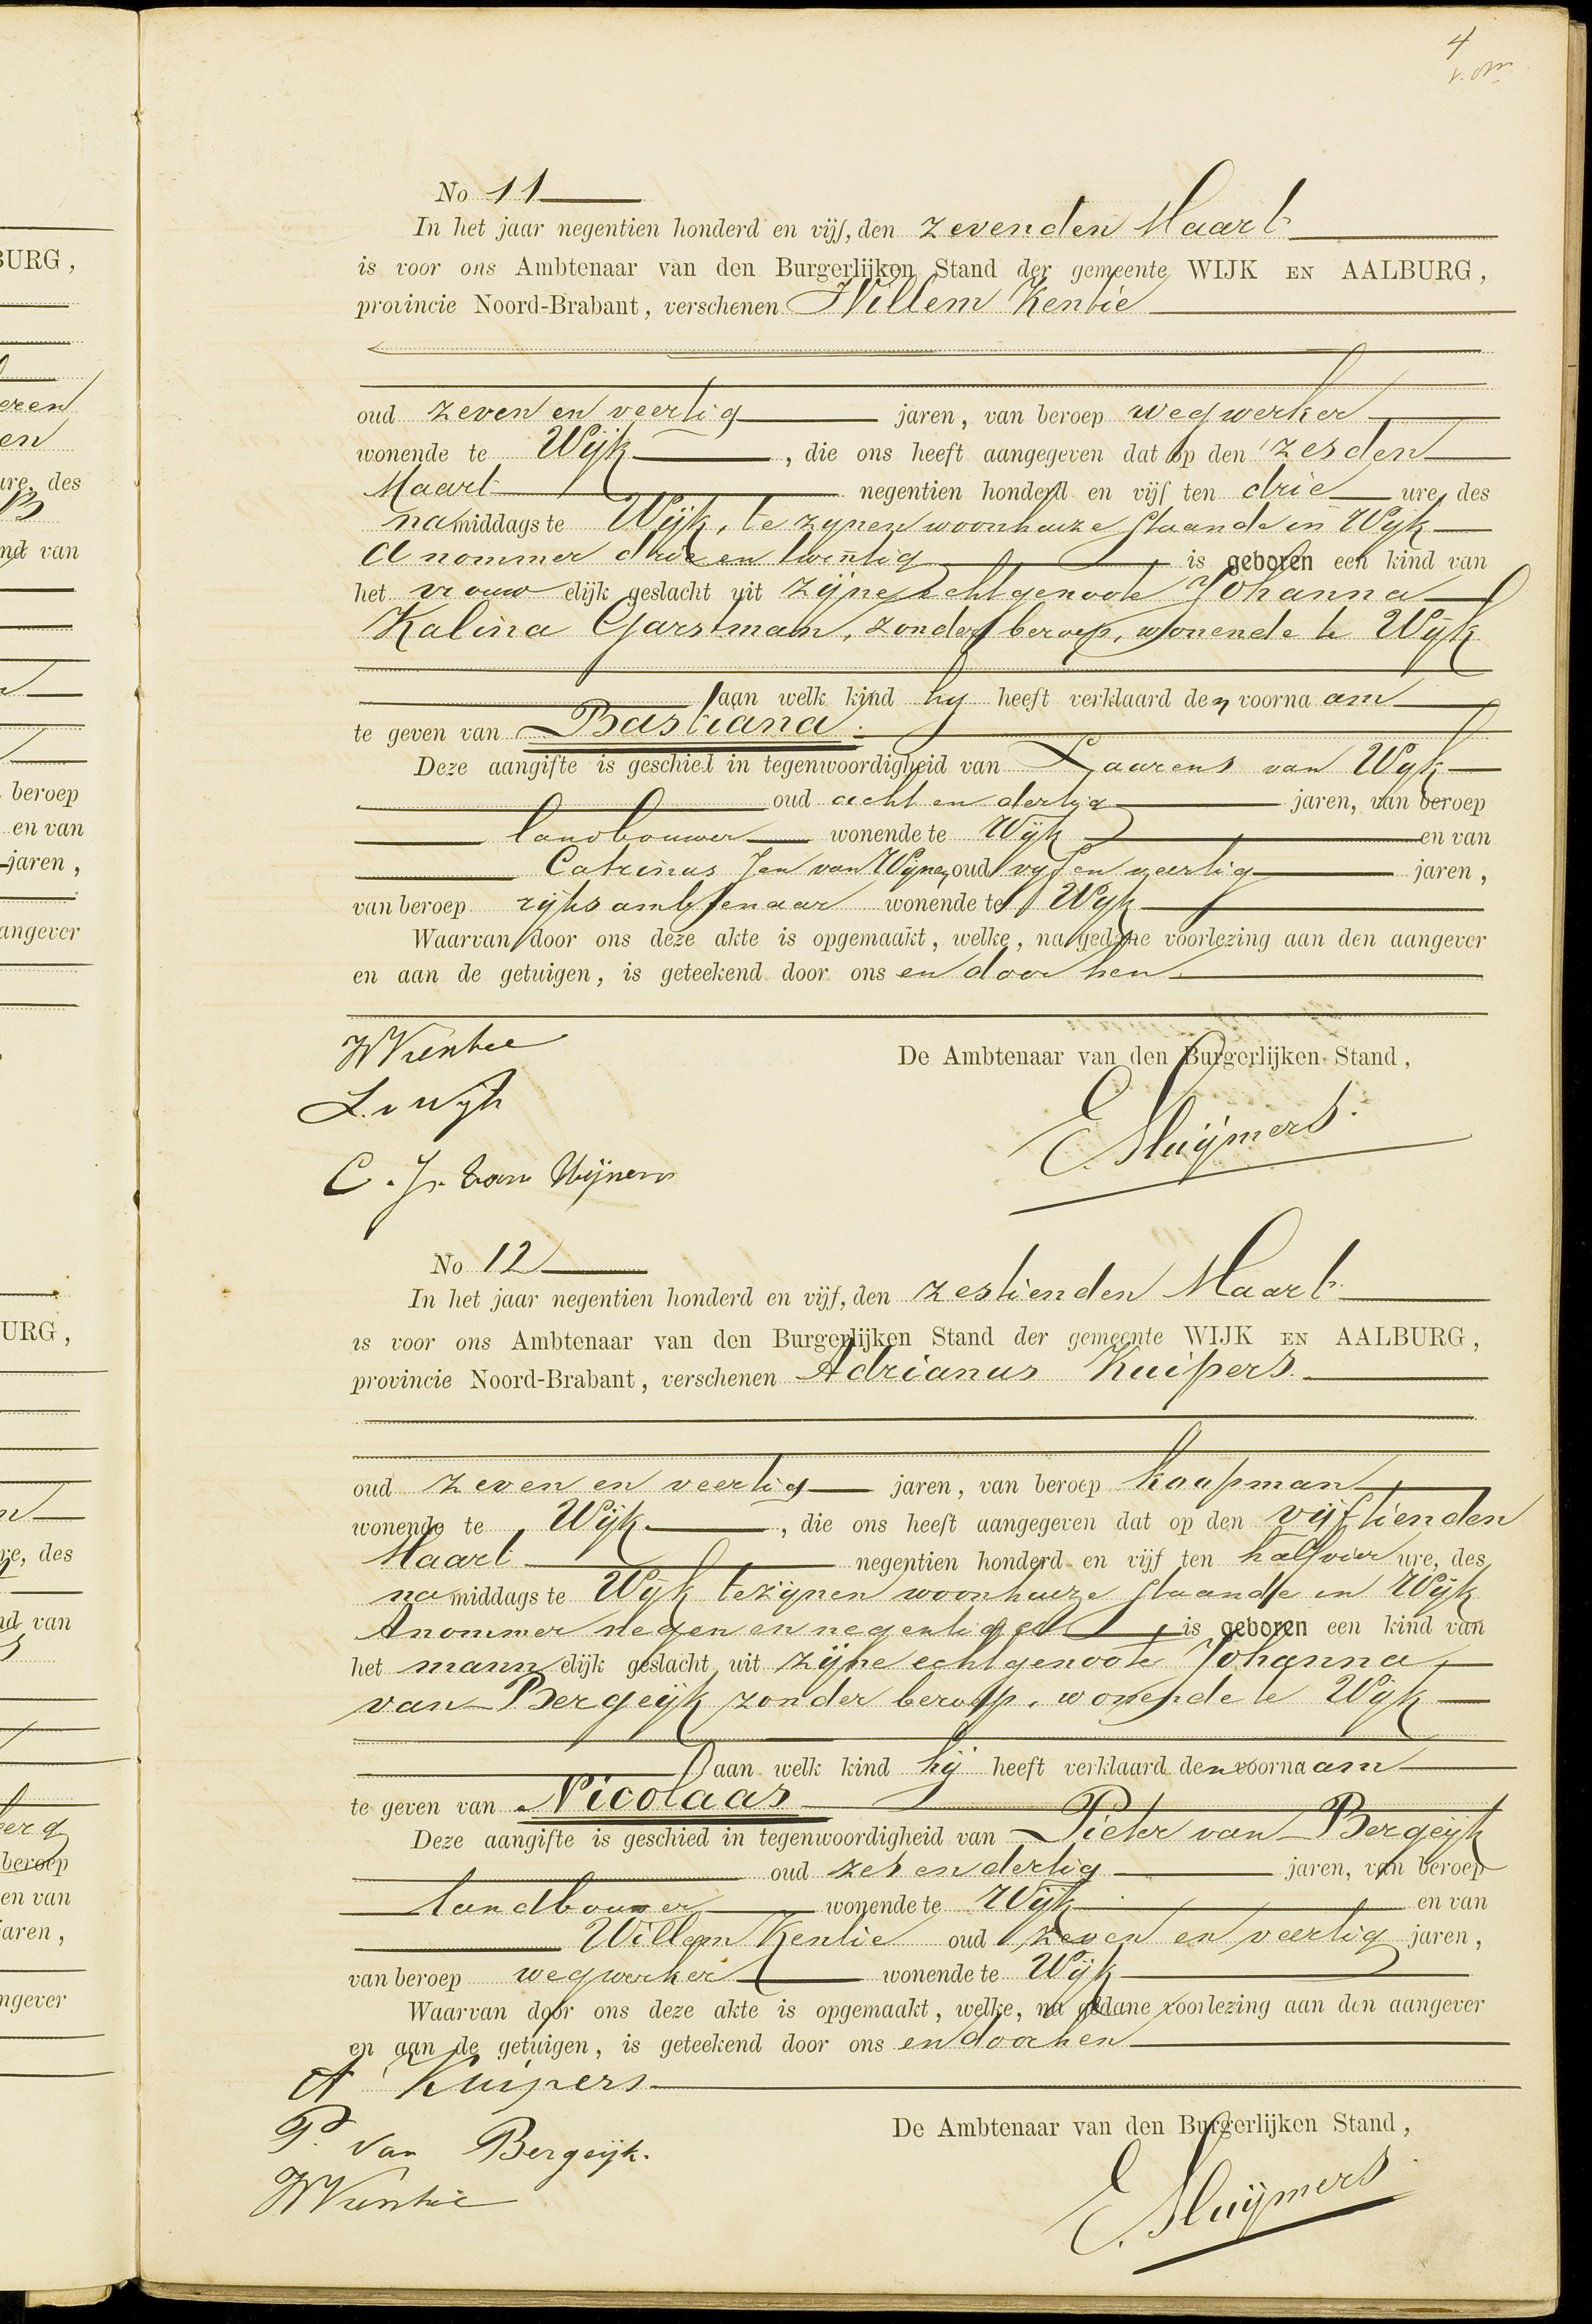 4
No 11
In het jaar negentien honderd en vijf, den zevenden Maart
is voor ons Ambtenaar van den Burgerlijken Stand der gemeente WIJK EN AALBURG,
provincie Noord-Brabant, verschenen Willem Kentie
oud zeven en veertig jaren, van beroep wegwerker
wonende te Wijk, die ons heeft aangegeven dat op den zesden
Maart negentien honderd en vijf ten drie ure, des
namiddags te Wijk, te zijnen woonhuize staande in Wijk
A nommer drie en twintig is geboren een kind van
het vrouwelijk geslacht uit zijne echtgenoote Johanna
Kalina Garstman, zonder beroep, wonende te Wijk
aan welk kind hij heeft verklaard den voornaam
te geven van Bastiana.
Deze aangifte is geschied in tegenwoordigheid van Laurens van Wijk
oud acht en dertig jaren, van beroep
landbouwer wonende te Wijk en van
Catrinus Jan van Wijnen, oud vijf en veertig jaren,
van beroep rijks ambtenaar wonende te Wijk
Waarvan door ons deze akte is opgemaakt, welke, na gedane voorlezing aan den aangever
en aan de getuigen, is geteekend door ons en door hen.
W Kentie
De Ambtenaar van den Burgerlijken Stand,
L. v Wijk
E Sluijmers.
C. Jn. van Wijnen
No 12
In het jaar negentien honderd en vijf, den zestienden Maart
is voor ons Ambtenaar van den Burgerlijken Stand der gemeente WIJK EN AALBURG,
provincie Noord-Brabant, verschenen Adrianus Kuipers.
oud zeven en veertig jaren, van beroep koopman
wonende te Wijk, die ons heeft aangegeven dat op den vijftienden
Maart negentien honderd en vijf ten half vier ure, des
namiddags te Wijk te zijnen woonhuize staande in Wijk
A nommer negen en negentig is geboren een kind van
het mannelijk geslacht uit zijne echtgenoote Johanna
van Bergeijk zonder beroep, wonende te Wijk
aan welk kind hij heeft verklaard den voornaam
te geven van Nicolaas
Deze aangifte is geschied in tegenwoordigheid van Pieter van Bergeijk
oud zes en dertig jaren, van beroep
landbouwer wonende te Wijk en van
Willem Kentie oud zeven en veertig jaren,
van beroep wegwerker wonende te Wijk
Waarvan door ons deze akte is opgemaakt, welke, na gedane voorlezing aan den aangever
en aan de getuigen, is geteekend door ons en door hen
A Kuipers
De Ambtenaar van den Burgerlijken Stand,
P. van Bergeijk.
W Kentie
E. Sluijmers